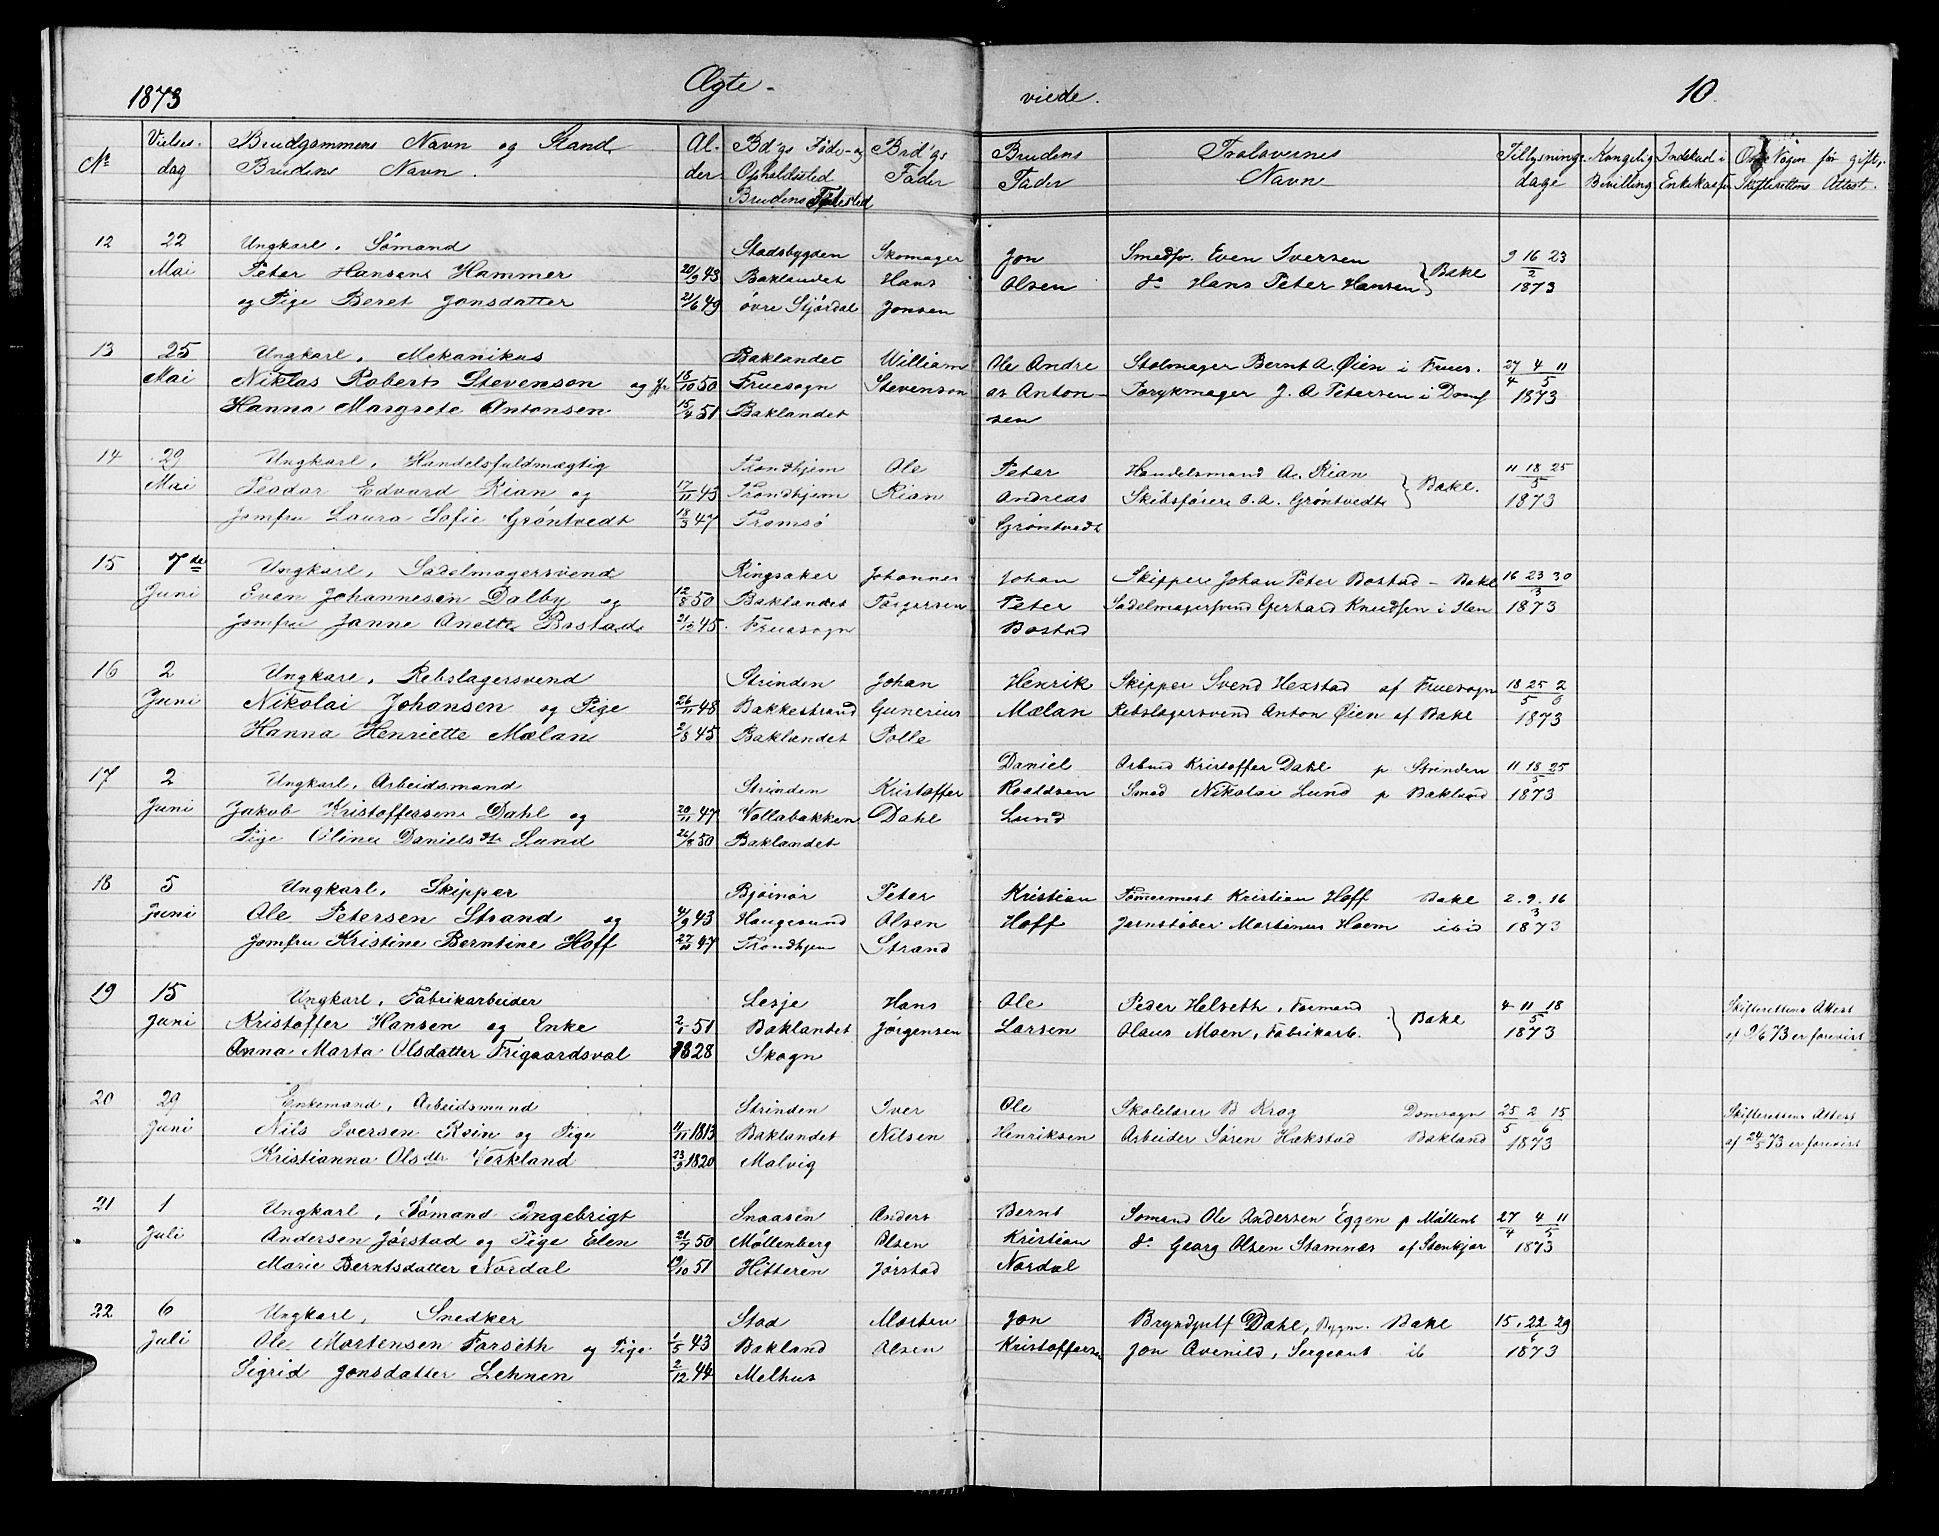 1873 Ægte- viede. 10.
No Vielses- dag Brudgommens Navn og Stand. Brudens Navn. Al- der Bd'gs Føde- og Opholdssted Brudens Fødested Brd'gs Fader Brudens Fader Trolovernes Navn Tillysnings- dage Kongelig Bevilling Indskud i Enkekassen Skifterettens Attest.
12 22 Ungkarl, Sömand Stadsbygden Skomager Jon Smedsv. Even Iversen 9 16 23
Mai Peter Hansen Hammer 20/9 43 Baklandet Hans Olsen do Hans Peter Hansen } Bake 2
og Pige Beret Jonsdatter 21/6 49 övre Stjördal Jonsen 1873
13 25 Ungkarl, Mekanikus Baklandet William Ole Andre Stolmager Bernt A. Øien i Frues. 27 4 11
Mai Niklas Roberts Stevenson og Jfr 18/10 50 Fruesogn Stevenson as Anton- J. A. Petersen i Doms 4 5
Hanna Margrete Antonsen 15/4 51 Baklandet sen 1873
14 29 Ungkarl, Handelsfuldmægtig Trondhjem Ole Peter Handelsmand A. Rian 11 18 25
Mai Teodor Edvard Rian og 17/11 43 Trondhjem Rian Andreas Skibsförer O. A. Gröntvedt } Bake. 5
Jomfru Laura Sofie Gröntvedt 18/3 47 Tromsö Gröntvedt 1873
15 7de Ungkarl, Sadelmagersvend Ringsaker Johannes Johan Skipper Johan Peter Bostad - Bake 16 23 30
Juni Even Johannesen Dalby og 12/8 50 Baklandet Torgersen Peter Sadelmagersvend Gerhard Knudsen i Ilen 3
Jomfru Janne Anette Bostad 21/12 45. Fruesogn Bostad 1873
16 2 Ungkarl, Rebslagersvend Strinden Johan Henrik Skipper Svend Hexstad af Fruesogn 18 25 2
Juni Nikolai Johansen og Pige 26/11 48 Bakkestrand Gunerius Mælan Rebslagersvend Anton Øien af Bake 5 6
Hanna Henriette Mælan 2/8 45 Baklandet Polle 1873
17 2 Ungkarl, Arbeidsmand Strinden Kristoffer Daniel Arbmd Kristoffer Dahl p Strinden 11 18 25
Juni Jakob Kristoffersen Dahl og 20/11 47 Vollabakken Dahl Roaldsen Smed Nikolai Lund p Bakland 5
Pige Oline Daniels dtr Lund 26/8 50 Baklandet Lund 1873
18 5 Ungkarl, Skipper Bjöinör Peter Kristian Tömermest Kristian Hoff Bake 2. 9. 16
Juni Ole Petersen Strand og 4/9 43 Haugesund Olsen Hoff Jernstöber Martinus Haem ibid 3
Jomfru Kristine Berntine Hoff 27/10 47 Trondhjem Strand 1873
19 15 Ungkarl, Fabrikarbeider Lesje Hans Ole Peder Helseth, Formand 4 11 18 Skifterettens Attest
Juni Kristoffer Hansen og Enke 2/1 51 Baklandet Jörgensen Larsen Olaus Moen, Fabrikarb. } Bake 5 af 9/6 73 er forevist
Anna Marta Olsdatter Frigaardsval 1828 Skogn 1873
20 29 Enkemand, Arbeidsmand Strinden Iver Ole Skolelærer B Krog Domsogn 25 2 15 Skifterettens Attest
Juni Nils Iversen Rein og Pige 11/11 1813 Baklandet Nilsen Henriksen Arbeider Sören Hækstad Bakland 5 6 af 24/5 73 er forevist
Kristianna Olsdtr Verkland 23/3 1820 Malvig 1873
21 1 Ungkarl, Sömand Ingebrigt Snaasen Anders Bernt Sömand Ole Andersen Eggen p Möllenb 27 4 11
Juli Andersen Jörstad og Pige Elen 21/7 50 Möllenberg Olsen Kristian do Georg Olsen Stamnæs af Stenkjær 4 5
Marie Berntsdatter Nordal 10/10 51 Hitteren Jorstad Nordal 1873
22 6 Ungkarl, Snedker Stod Morten Jon Bryndjulf Dahl, Bygm. Bake 15. 22 29
Juli Ole Mortensen Forseth og Pige 1/5 43 Bakland Olsen Kristoffersen Jon Avenild, Sergeant ib 6
Sigrid Jonsdatter Lehnen 2/12 44 Melhus 1873